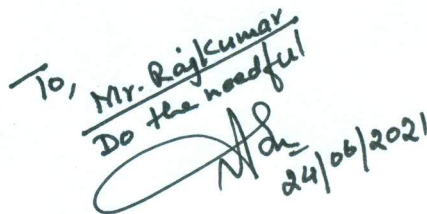 To, Mr. Rajkumar
Do the needful
24/06/2021